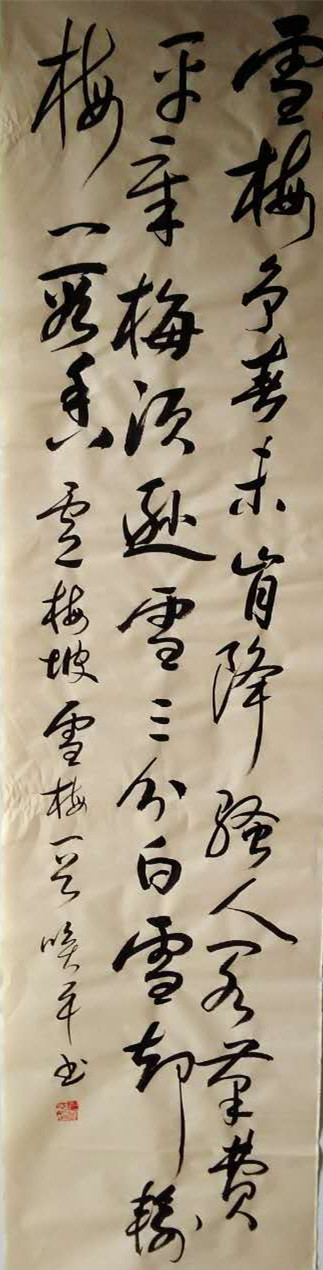 雪梅争春未肯降骚人阁笔费
平章梅须逊雪三分白雪却输
梅一段香卢梅坡雪梅一首平书